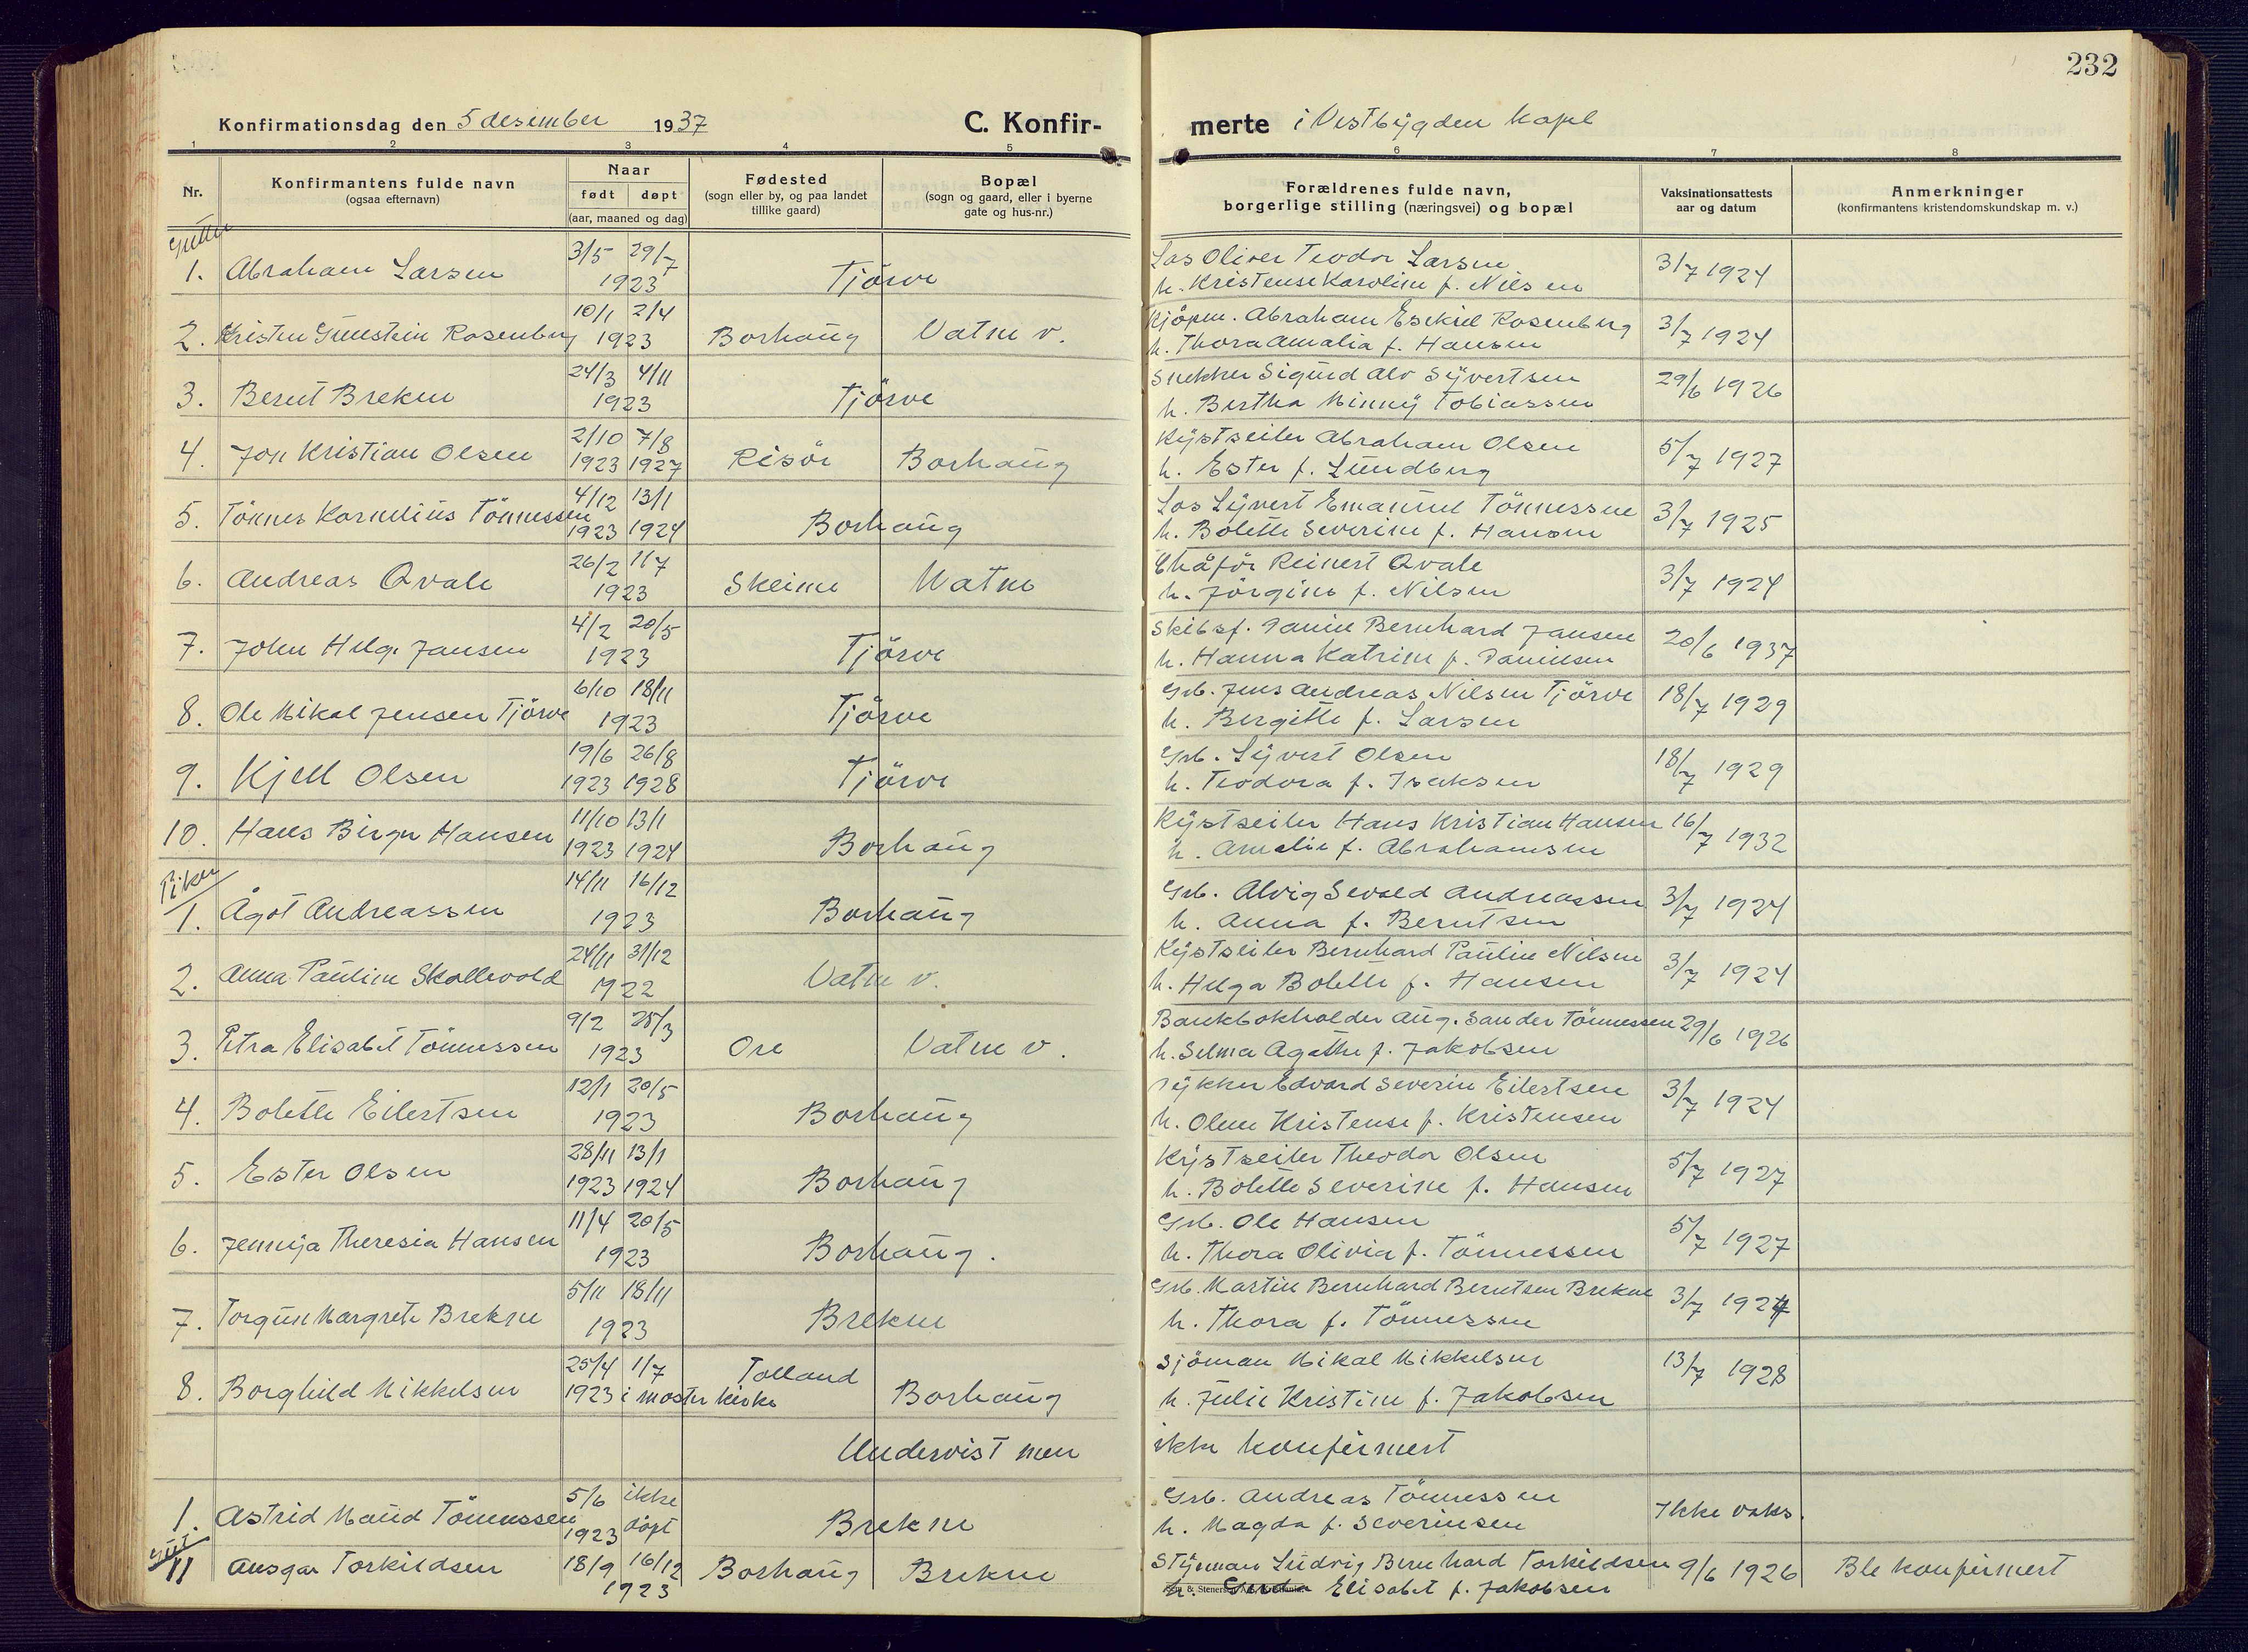 232
Konfirmationsdag den 5 desember 1937 C. Konfir-
merte i Vestbygden Kapel
1 2 3 4 5 6 7 8
Nr.
Konfirmantens fulde navn
(ogsaa efternavn)
Naar
født døpt
(aar, maaned og dag)
Fødested
(sogn eller by, og paa landet
tillike gaard)
Bopæl
(sogn og gaard, eller i byerne
gate og hus-nr.)
Forældrenes fulde navn,
borgerlige stilling (næringsvei) og bopæl
Vaksinationsattests
aar og datum
Anmerkninger
(konfirmantens kristendomskundskap m. v.)
Gutter
1. Abraham Larsen 3/5 29/7 1923 Tjörve
Los Oliver Teodor Larsen
h. Kristense Karoline f. Nilsen
3/7 1924
2. Kristen Gunstein Rosenberg 10/1 2/4 1923 Borhaug Vatne v.
Kjöpm. Abraham Esekiel Rosenberg
h. Thora Amalia f. Hansen
3/7 1924
3. Bernt Brekne 24/3 4/11 1923 Tjörve
Snekker Sigurd Alv Syvertsen
h. Bertha Minny Tobiassen
29/6 1926
4. Jon Kristian Olsen 2/10 1923 7/8 1927 Risör Borhaug
Kystseiler Abraham Olsen
h. Ester f. Lundberg
5/7 1927
5. Tönnes Kornelius Tönnessen 4/12 1923 13/1 1924 Borhaug
Los Syvert Emanuel Tönnessen
h. Bolette Severine f. Hansen
3/7 1925
6. Andreas Qvale 26/2 1/7 1923 Skeime Vatne
Chåför Reinert Qvale
h. Jörgine f. Nilsen
3/7 1924
7. John Helge Jansen 4/2 20/5 1923 Tjörve
Skibsf. Daniel Bernhard Jansen
h. Hanna Katrine f. Danielsen
20/6 1937
8. Ole Mikal Jensen Tjörve 6/10 18/11 1923 Tjörve
Grb. Jens Andreas Nilsen Tjörve
h. Bergitte f. Larsen
18/7 1929
9. Kjell Olsen 19/6 1923 26/8 1928 Tjörve
Grb. Syvert Olsen
h. Teodora f. Isaksen
18/7 1929
10. Hans Birger Hansen 11/10 1923 13/1 1924 Borhaug
Kystseiler Hans Kristian Hansen
h. Amalie f. Abrahamsen
16/7 1932
Piker
1. Ågot Andreassen 14/11 16/12 1923 Borhaug
Grb. Alvig Sevald Andreassen
h. Anna f. Berntsen
3/7 1924
2. Anna Pauline Skollevold 24/11 31/12 1922 Vatne v.
Kystseiler Bernhard Paulin Nilsen
h. Helga Bolette f. Hansen
3/7 1924
3. Petra Elisabet Tönnessen 9/2 25/3 1923 Ore Vatne v.
Bankbokholder Aug. Sander Tönnessen
h. Selma Agathe f. Jakobsen
29/6 1926
4. Bolette Eilertsen 12/1 20/5 1923 Borhaug
Dykker Edvard Severin Eilertsen
h. Oline Kristense f. Kristensen
3/7 1924
5. Ester Olsen 28/11 1923 13/1 1924 Borhaug
Kystseiler Theodor Olsen
h. Bolette Severine f. Hansen
5/7 1927
6. Jennija Theresia Hansen 11/4 20/5 1923 Borhaug.
Grb. Ole Hansen
h. Thora Olivia f. Tönnessen
5/7 1927
7. Torgun Margrete Brekne 5/11 18/11 1923 Brekne
Grb. Martin Bernhard Berntsen Brekne
h. Thora f. Tönnessen
3/7 1924
8. Borghild Mikkelsen 25/4 1923 1/7 i moster kirke Tolland Borhaug
Sjöman Mikal Mikkelsen
h. Julie Kristine f. Jakobsen
13/7 1928
Undervist men ikke konfirmert
1. Astrid Maud Tönnessen 5/6 1923 ikke döpt Brekne
Grb. Andreas Tönnessen
h. Magda f. Severinsen
Ikke vaks.
Gut.
11 Ansgar Torkildsen 18/9 16/12 1923 Borhaug Brekne
Styrman Ludvig Bernhard Torkildsen
h. Gerda Elisabet f. Jakobsen
9/6 1926 Ble konfirmert